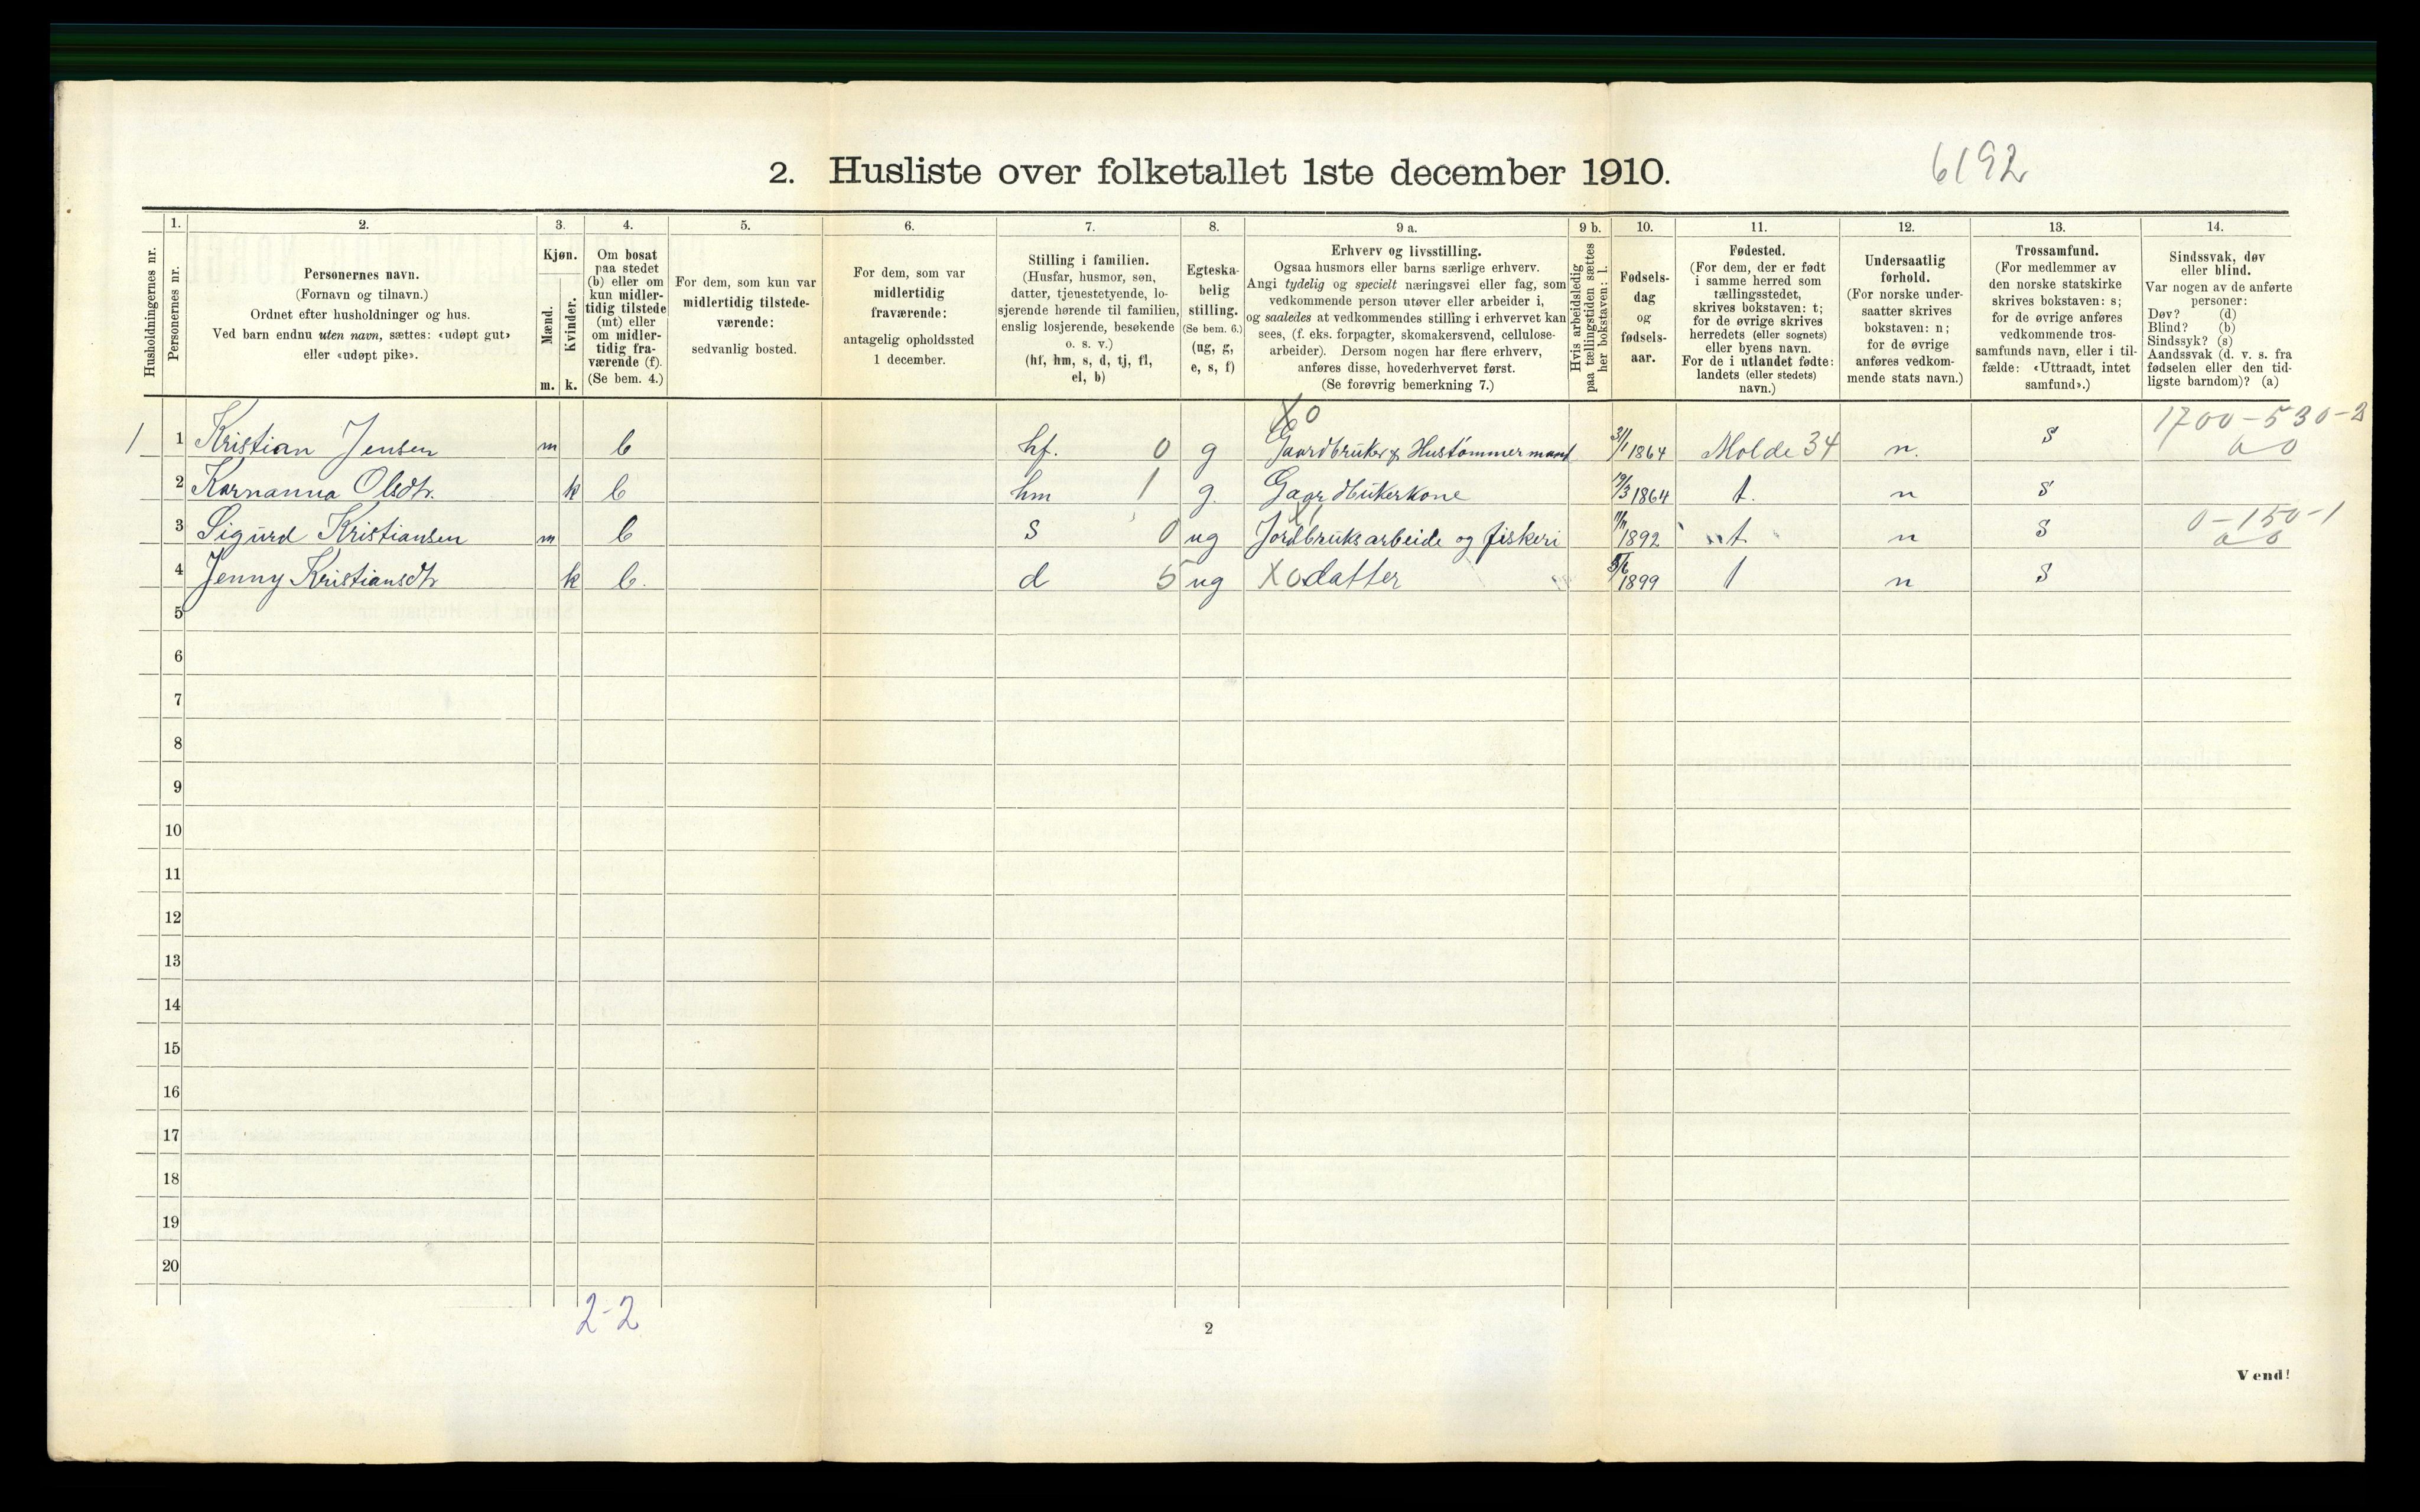 2. Husliste over folketallet 1ste december 1910.
6192
1. 2. 3. 4. 5. 6. 7. 8. 9 a. 9 b. 10. 11. 12. 13. 14.
Husholdningernes nr.
Personernes nr.
Personernes navn.
(Fornavn og tilnavn.)
Ordnet efter husholdninger og hus.
Ved barn endnu uten navn, sættes: «udøpt gut»
eller «udøpt pike».
Kjøn.
Mænd.
Kvinder.
m. k.
Om bosat
paa stedet
(b) eller om
kun midler-
tidig tilstede
(mt) eller
om midler-
tidig fra-
værende (f).
(Se bem. 4.)
For dem, som kun var
midlertidig tilstede-
værende:
sedvanlig bosted.
For dem, som var
midlertidig
fraværende:
antagelig opholdssted
1 december.
Stilling i familien.
(Husfar, husmor, søn,
datter, tjenestetyende, lo-
sjerende hørende til familien,
enslig losjerende, besøkende
o. s. v.)
(hf, hm, s, d, tj, fl,
el, b)
Egteska-
belig
stilling.
(Se bem. 6.)
(ug, g,
e, s, f)
Erhverv og livsstilling.
Ogsaa husmors eller barns særlige erhverv.
Angi tydelig og specielt næringsvei eller fag, som
vedkommende person utøver eller arbeider i,
og saaledes at vedkommendes stilling i erhvervet kan
sees, (f. eks. forpagter, skomakersvend, cellulose-
arbeider). Dersom nogen har flere erhverv,
anføres disse, hovederhvervet først.
(Se forøvrig bemerkning 7.)
Hvis arbeidsledig
paa tællingstiden sættes
her bokstaven: l.
Fødsels-
dag
og
fødsels-
aar.
Fødested.
(For dem, der er født
i samme herred som
tællingsstedet,
skrives bokstaven: t;
for de øvrige skrives
herredets (eller sognets)
eller byens navn.
For de i utlandet fødte:
landets (eller stedets)
navn.)
Undersaatlig
forhold.
(For norske under-
saatter skrives
bokstaven: n;
for de øvrige
anføres vedkom-
mende stats navn.)
Trossamfund.
(For medlemmer av
den norske statskirke
skrives bokstaven: s;
for de øvrige anføres
vedkommende tros-
samfunds navn, eller i til-
fælde: «Uttraadt, intet
samfund».)
Sindssvak, døv
eller blind.
Var nogen av de anførte
personer:
Døv? (d)
Blind? (b)
Sindssyk? (s)
Aandssvak (d. v. s. fra
fødselen eller den tid-
ligste barndom)? (a)
X0 1700-530-2
1 1 Kristian Jensen m b hf. 0 g Gaardbruker & Hustømmermand 31/1 1864 Molde 34 n. s
2 Karnanna Olsdtr. k b hm 1 g. Gaardbukerkone 19/3 1864 t. n s
3 Sigurd Kristiansen m b s 0 ug Jordbruksarbeide og fiskeri 11/11 1892 t. n s 0-150-1
4 Jenny Kristiansdtr k b. d 5 ug X0 datter 1899 t n s
5
6
7
8
9
10
11
12
13
14
15
16
17
18
19
20
2-2
2
Vend!